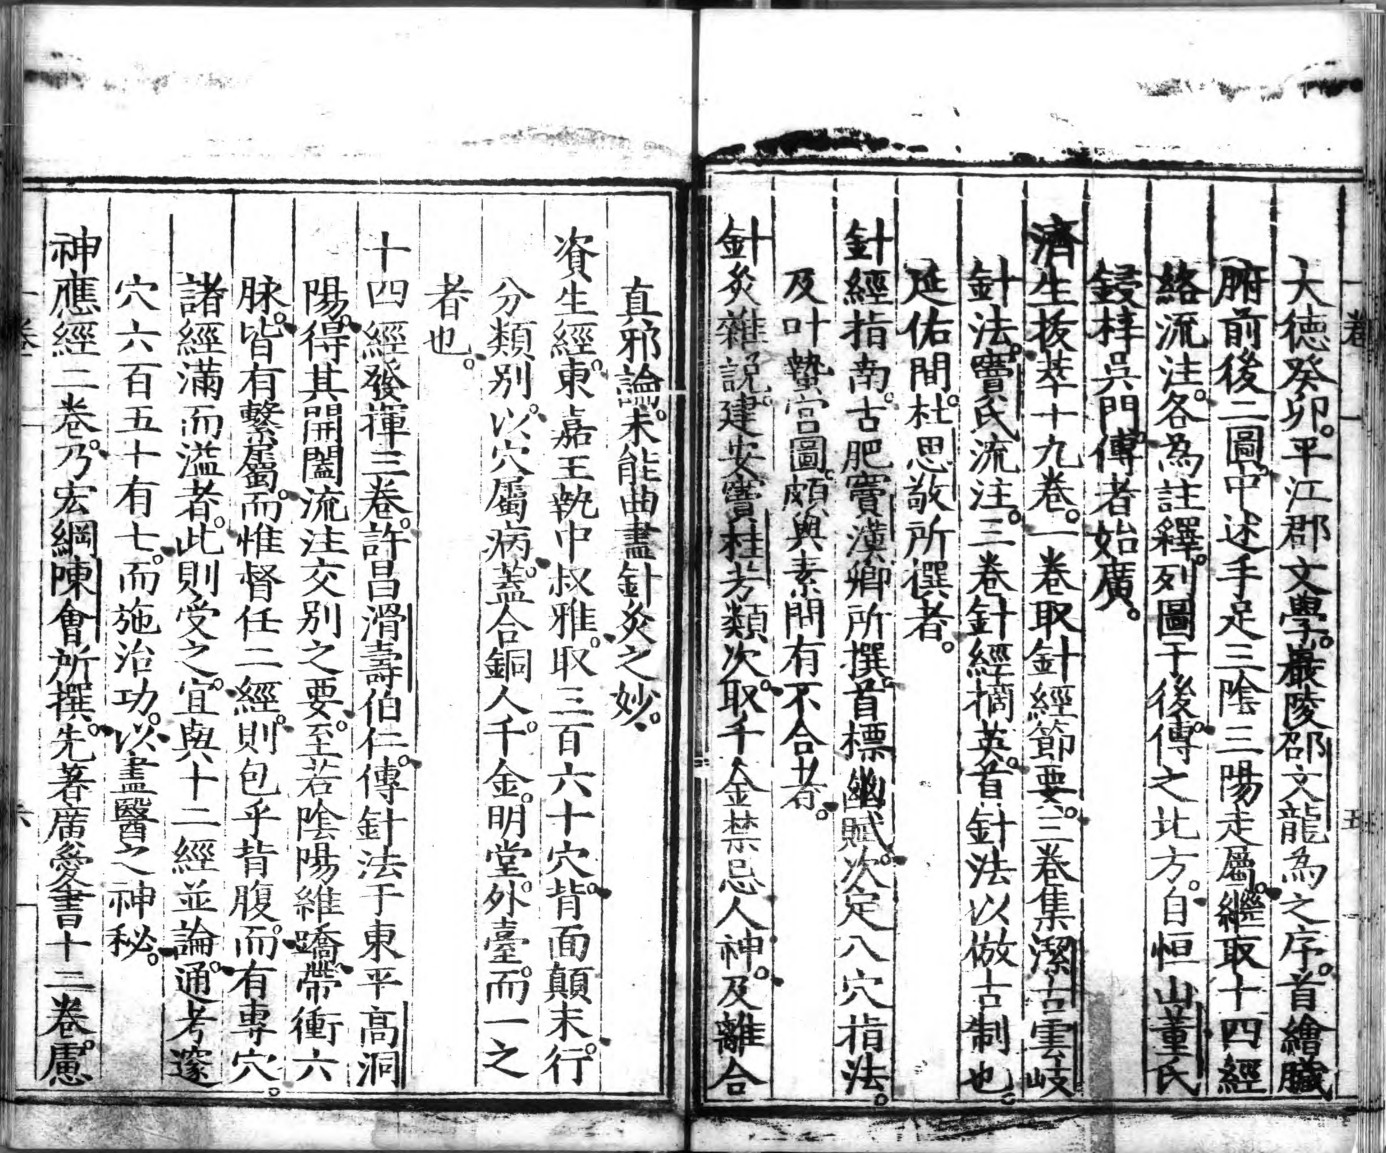 卷一 五
大德癸卯平江郡文學巖陵邵文龍為之序首繪臟
腑前後二圖中述手足三陰三陽走屬繼取十四經
絡流注各為註釋列圖于後傳之北方自恒山董氏
鋟梓吳門傳者始廣
濟生拔萃十九卷一卷取針經節要二卷集潔古雲岐
針法竇氏流注三卷針經摘英首針法以倣古制也
延佑間杜思敬所撰者
針經指南古肥竇漢卿所撰首標幽賦次定八穴指法
及叶蟄宮圖頗與素問有不合者
針灸雜說建安竇桂芳類次取千金禁忌人神及離合
真邪論未能曲盡針灸之妙
資生經東嘉王執中叔雅取三百六十穴背面顛末行
分類別以穴屬病蓋合銅人千金明堂外臺而一之
者也
十四經發揮三卷許昌滑壽伯仁傳針法于東平高洞
陽得其開闔流注交別之要至若陰陽維蹻帶衝六
脉皆有繫屬而惟督任二經則包乎背腹而有專穴
諸經滿而溢者此則受之宜與十二經並論通考邃
穴六百五十有七而施治功以盡醫之神秘
神應經二卷乃宏綱陳會所撰先著廣愛書十二卷慮
卷 六